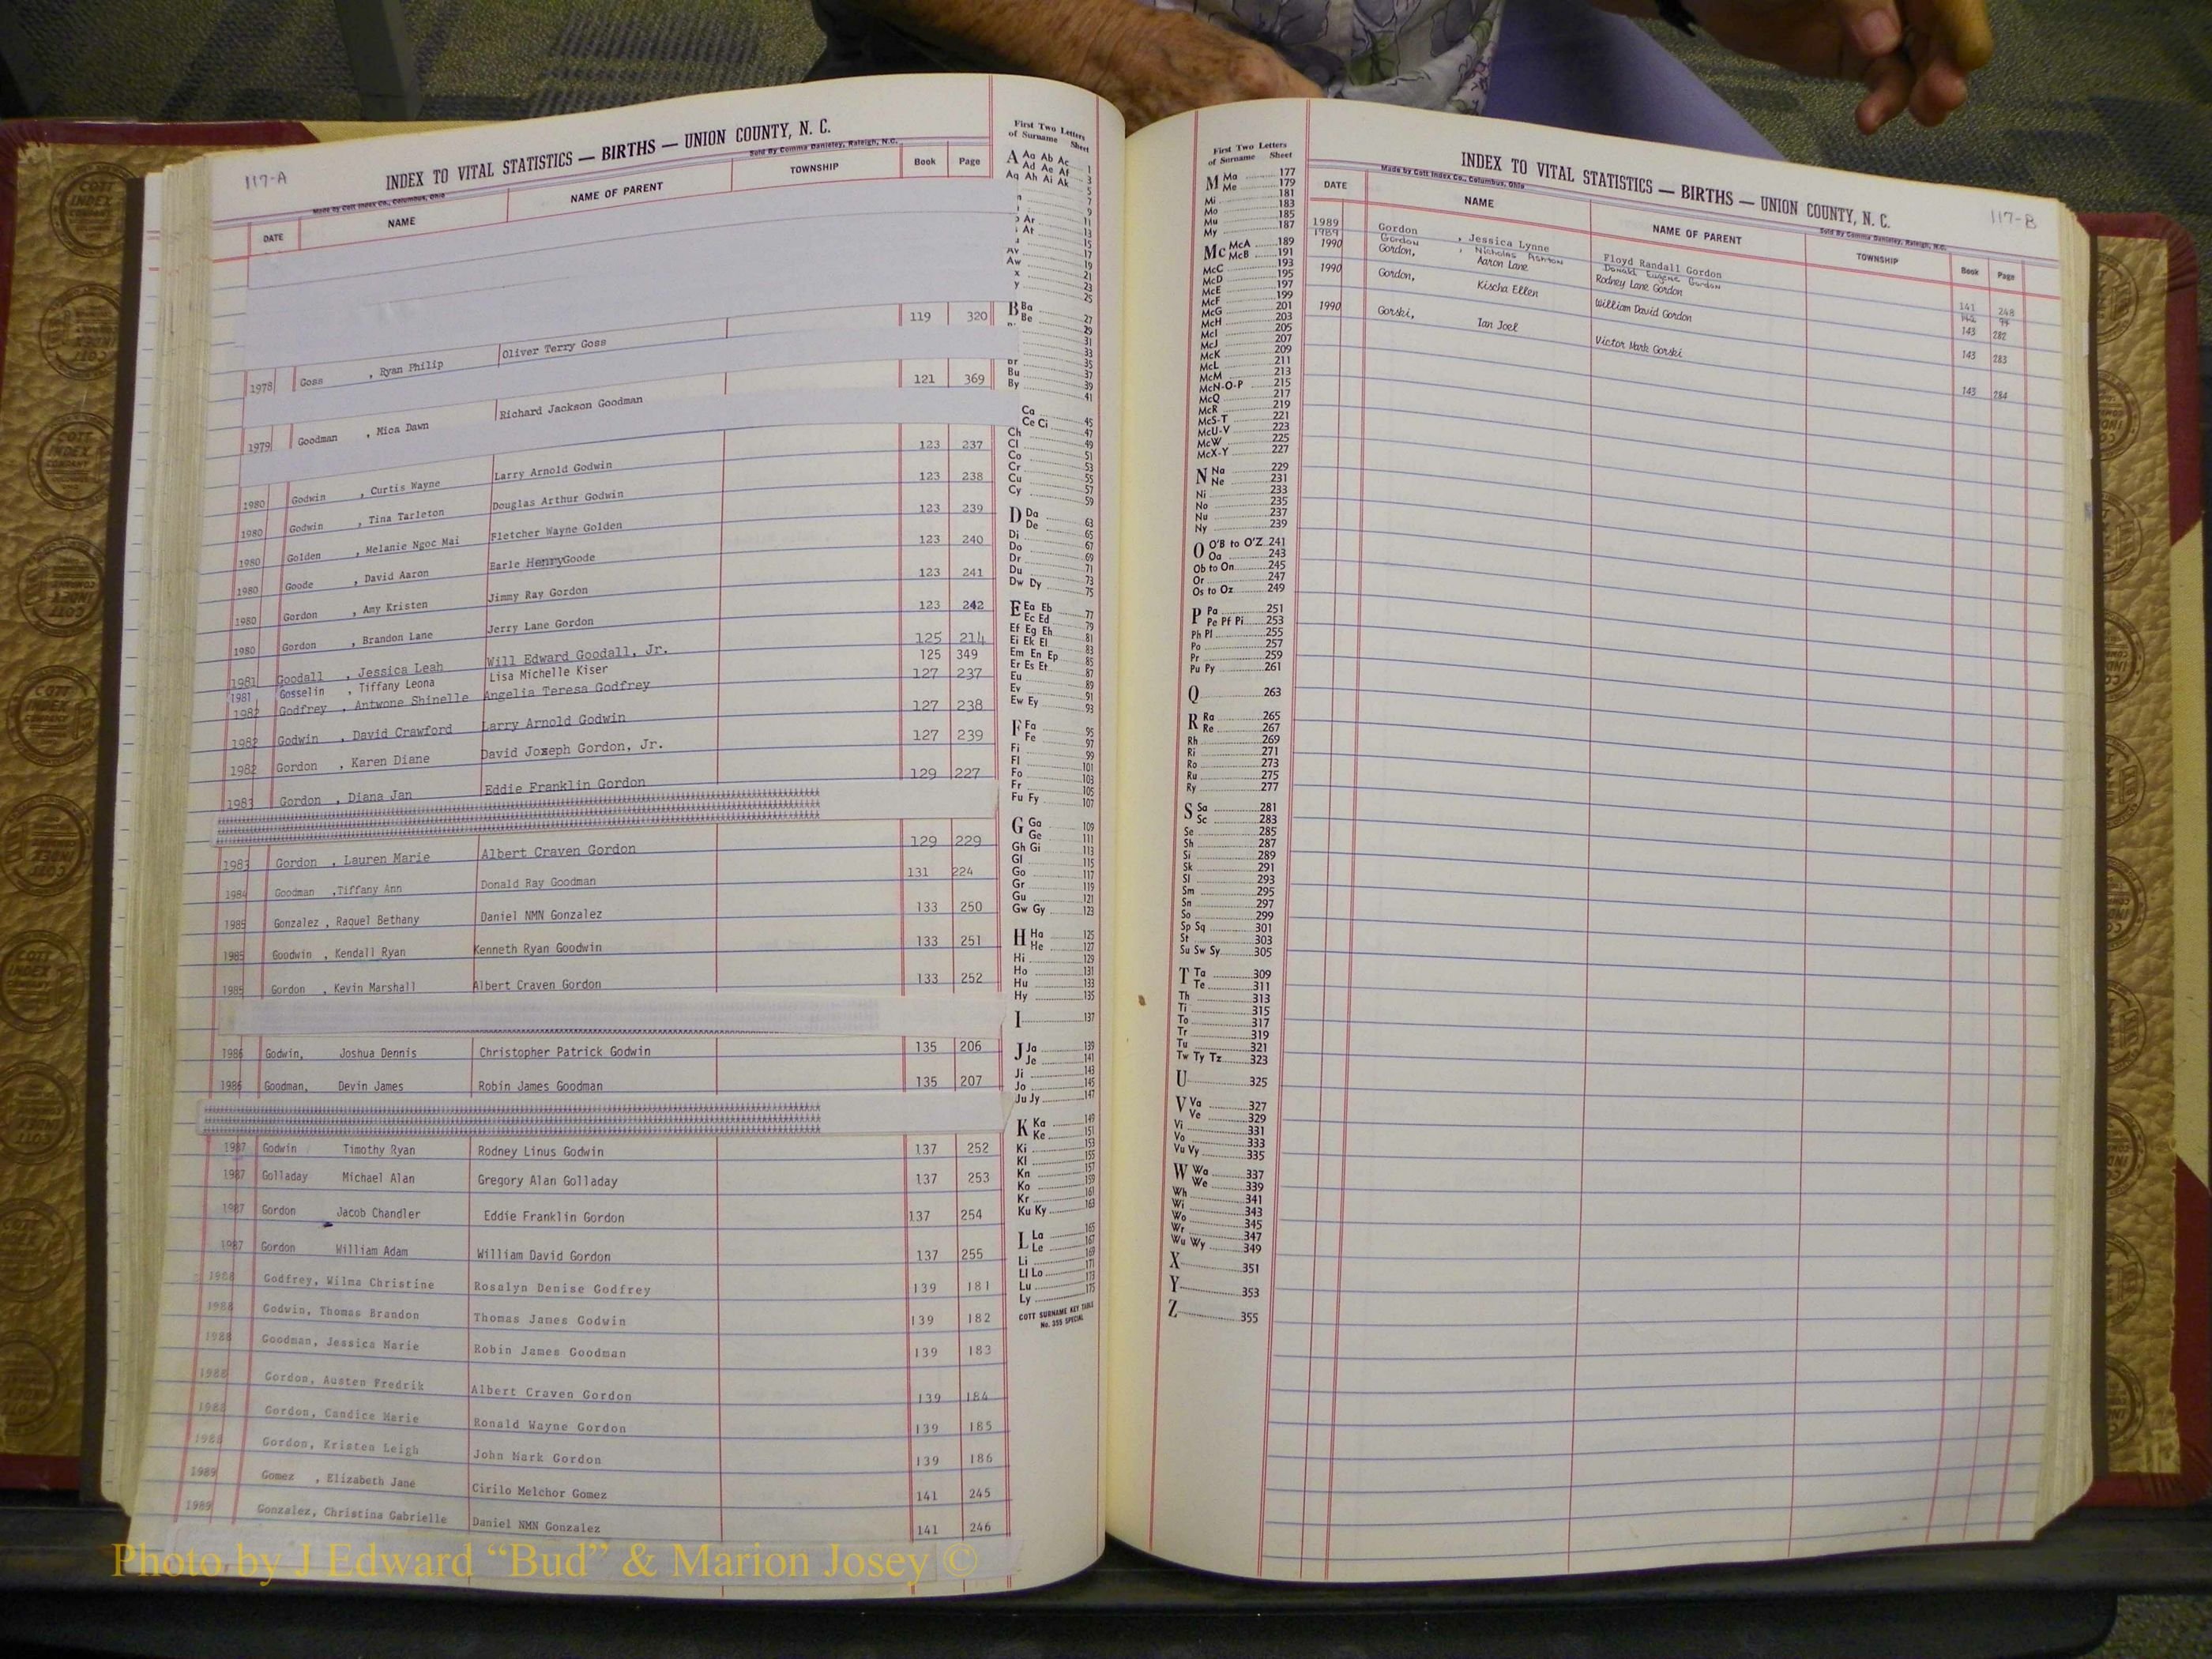 117-A
INDEX TO VITAL STATISTICS — BIRTHS — UNION COUNTY, N. C.
Made by Cott Index Co., Columbus, Ohio
Sold By Comma Danieley, Raleigh, N.C.
DATE NAME NAME OF PARENT TOWNSHIP Book Page
119 320
1978 Goss , Ryan Philip Oliver Terry Goss
121 369
1979 Goodman , Mica Dawn Richard Jackson Goodman
1980 Godwin , Curtis Wayne Larry Arnold Godwin 123 237
1980 Godwin , Tina Tarleton Douglas Arthur Godwin 123 238
1980 Golden , Melanie Ngoc Mai Fletcher Wayne Golden 123 239
1980 Goode , David Aaron Earle HenryGoode 123 240
1980 Gordon , Amy Kristen Jimmy Ray Gordon 123 241
1980 Gordon , Brandon Lane Jerry Lane Gordon 123 242
1981 Goodall , Jessica Leah Will Edward Goodall, Jr. 125 214
1981 Gosselin , Tiffany Leona Lisa Michelle Kiser 125 349
1982 Godfrey , Antwone Shinelle Angelia Teresa Godfrey 127 237
1982 Godwin , David Crawford Larry Arnold Godwin 127 238
1982 Gordon , Karen Diane David Joseph Gordon, Jr. 127 239
1983 Gordon , Diana Jan Eddie Franklin Gordon 129 227
1983 Gordon , Lauren Marie Albert Craven Gordon 129 229
1984 Goodman ,Tiffany Ann Donald Ray Goodman 131 224
1985 Gonzalez , Raquel Bethany Daniel NMN Gonzalez 133 250
1985 Goodwin , Kendall Ryan Kenneth Ryan Goodwin 133 251
1985 Gordon , Kevin Marshall Albert Craven Gordon 133 252
1986 Godwin, Joshua Dennis Christopher Patrick Godwin 135 206
1986 Goodman, Devin James Robin James Goodman 135 207
1987 Godwin Timothy Ryan Rodney Linus Godwin 137 252
1987 Golladay Michael Alan Gregory Alan Golladay 137 253
1987 Gordon Jacob Chandler Eddie Franklin Gordon 137 254
1987 Gordon William Adam William David Gordon 137 255
1988 Godfrey, Wilma Christine Rosalyn Denise Godfrey 139 181
1988 Godwin, Thomas Brandon Thomas James Godwin 139 182
1988 Goodman, Jessica Marie Robin James Goodman 139 183
1988 Gordon, Austen Fredrik Albert Craven Gordon 139 184
1988 Gordon, Candice Marie Ronald Wayne Gordon 139 185
1988 Gordon, Kristen Leigh John Mark Gordon 139 186
1989 Gomez , Elizabeth Jane Cirilo Melchor Gomez 141 245
1989 Gonzalez, Christina Gabrielle Daniel NMN Gonzalez 141 246
First Two Letters
of Surname Sheet
A Aa Ab Ac 1
Ad Ae Af 3
Aq Ah Ai Ak 5
7
9
Ar 11
At 13
15
Av 17
Aw 19
x 21
y 23
25
B Ba 27
Be 29
31
33
Br 35
Bu 37
By 39
41
Ca 45
Ce Ci 47
Ch 49
Cl 51
Co 53
Cr 55
Cu 57
Cy 59
D Da 63
De 65
Di 67
Do 69
Dr 71
Du 73
Dw Dy 75
E Ea Eb 77
Ec Ed 79
Ef Eg Eh 81
Ei Ek El 83
Em En Ep 85
Er Es Et 87
Eu 89
Ev 91
Ew Ey 93
F Fa 95
Fe 97
Fi 99
Fl 101
Fo 103
Fr 105
Fu Fy 107
G Ga 109
Ge 111
Gh Gi 113
Gl 115
Go 117
Gr 119
Gu 121
Gw Gy 123
H Ha 125
He 127
Hi 129
Ho 131
Hu 133
Hy 135
I 137
J Ja 139
Je 141
Ji 143
Jo 145
Ju Jy 147
K Ka 149
Ke 151
Ki 153
Kl 155
Kn 157
Ko 159
Kr 161
Ku Ky 163
L La 165
Le 167
Li 169
Ll Lo 171
Lu 173
Ly 175
COTT SURNAME KEY TABLE
No. 355 SPECIAL
First Two Letters
of Surname Sheet
M Ma 177
Me 179
Mi 181
Mo 183
Mu 185
My 187
Mc McA 189
McB 191
McC 193
McD 195
McE 197
McF 199
McG 201
McH 203
McI 205
McJ 207
McK 209
McL 211
McM 213
McN-O-P 215
McQ 217
McR 219
McS-T 221
McU-V 223
McW 225
McX-Y 227
N Na 229
Ne 231
Ni 233
No 235
Nu 237
Ny 239
O O'B to O'Z 241
Oa 243
Ob to On 245
Or 247
Os to Oz 249
P Pa 251
Pe Pf Pi 253
Ph Pl 255
Po 257
Pr 259
Pu Py 261
Q 263
R Ra 265
Re 267
Rh 269
Ri 271
Ro 273
Ru 275
Ry 277
S Sa 281
Sc 283
Se 285
Sh 287
Si 289
Sk 291
Sl 293
Sm 295
Sn 297
So 299
Sp Sq 301
St 303
Su Sw Sy 305
T Ta 309
Te 311
Th 313
Ti 315
To 317
Tr 319
Tu 321
Tw Ty Tz 323
U 325
V Va 327
Ve 329
Vi 331
Vo 333
Vu Vy 335
W Wa 337
We 339
Wh 341
Wi 343
Wo 345
Wr 347
Wu Wy 349
X 351
Y 353
Z 355
INDEX TO VITAL STATISTICS — BIRTHS — UNION COUNTY, N. C.
117-B
Made by Cott Index Co., Columbus, Ohio
Sold By Comma Danieley, Raleigh, N.C.
DATE NAME NAME OF PARENT TOWNSHIP Book Page
1989 Gordon , Jessica Lynne Floyd Randall Gordon 141 248
1989 Gordon , Nicholas Ashton Donald Eugene Gordon 142 94
1990 Gordon, Aaron Lane Rodney Lane Gordon 143 282
1990 Gordon, Kischa Ellen William David Gordon 143 283
1990 Gorski, Ian Joel Victor Mark Gorski 143 284
Photo by J Edward “Bud” & Marion Josey ©